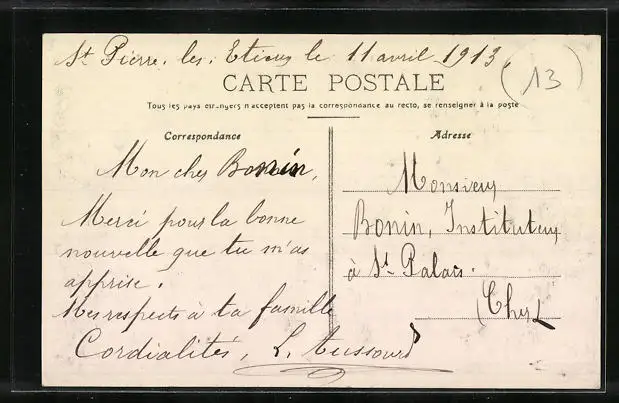 St Pierre. les. Etieux le 11 avril 1913.
(13)
CARTE POSTALE
Tous les pays étrangers n'acceptent pas la correspondance au recto, se renseigner à la poste
Correspondance
Mon cher Bonnin,
Merci pour la bonne
nouvelle que tu m'as
apprise.
Mes respects à ta famille
Cordialités, L.
Adresse
Monsieur
Bonin, Instituteur
à St Palais.
(Cher)